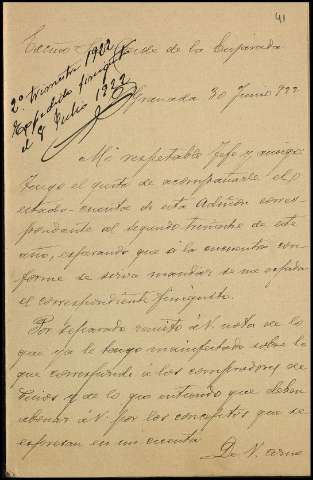 41
Excmo Sr Conde de la Conquista
2º trimestre 1922
Expedido finiquito
el 8 Julio 1922
Granada 30 Junio 922
Mi respetable Jefe y amigo:
Tengo el gusto de acompañarle el
estado-cuenta de esta Admon corres-
pondiente al segundo trimestre de este
año, esperando que si la encuentra con-
forme se sirva mandar se me expida
el correspondiente finiquito.
Por separado remito á V. nota de lo
que ya le tengo manifestado sobre lo
que corresponde á los compradores de
y de lo que entiendo que deben
abonar á V. por los conceptos que se
expresan en mi cuenta
De V. como